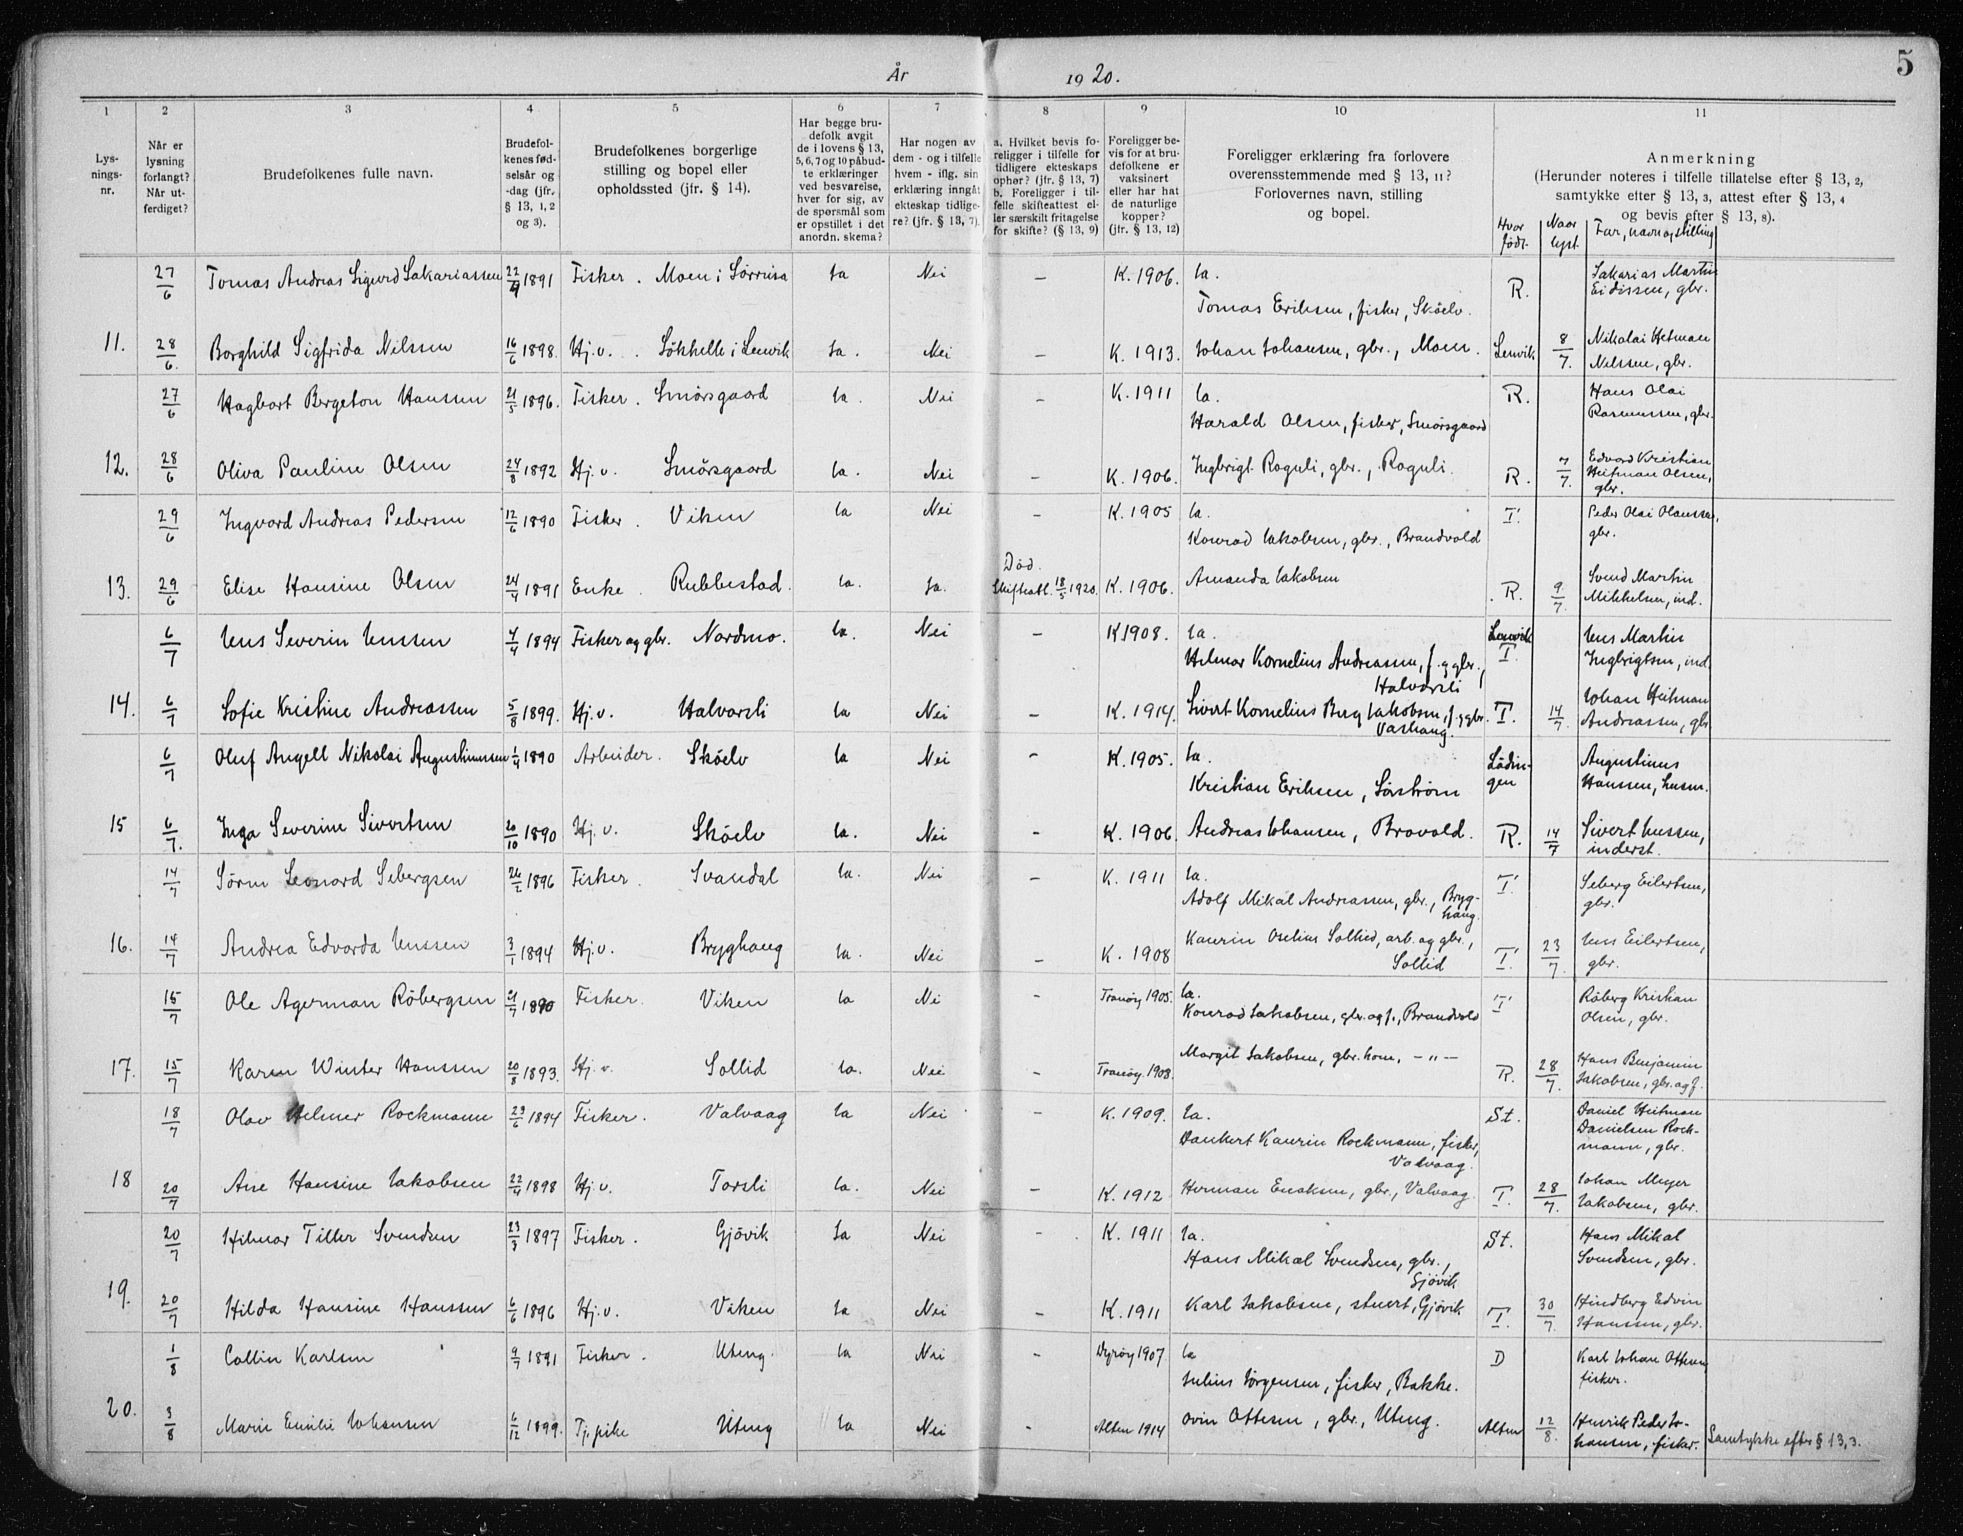 År 1920.
5
1 2 3 4 5 6 7 8 9 10 11
Lysningsnr.
Når er lysning forlangt? Når utferdiget?
Brudefolkenes fulle navn.
Brudefolkenes fødselsår og -dag (jfr. § 13, 1, 2 og 3).
Brudefolkenes borgerlige stilling og bopel eller opholdssted (jfr. § 14).
Har begge brudefolk avgit de i lovens § 13, 5, 6, 7 og 10 påbudte erklæringer ved besvarelse, hver for sig, av de spørsmål som er opstillet i det anordn. skema?
Har nogen av dem - og i tilfelle hvem - iflg. sin erklæring inngåt ekteskap tidligere? (jfr. § 13, 7).
a. Hvilket bevis foreligger i tilfelle for tidligere ekteskaps ophør? (jfr. § 13, 7) b. Foreligger i tilfelle skifteattest eller særskilt fritagelse for skifte? (§ 13, 9)
Foreligger bevis for at brudefolkene er vaksinert eller har hat de naturlige kopper? (jfr. § 13, 12)
Foreligger erklæring fra forlovere overensstemmende med § 13, 11? Forlovernes navn, stilling og bopel.
Anmerkning (Herunder noteres i tilfelle tillatelse efter § 13, 2, samtykke efter § 13, 3, attest efter § 13, 4 og bevis efter § 13, 8).
Hvor født. Naar lyst. Far, navn og stilling
27/6 Tomas Andreas Sigurd Sakariassen 22/9 1891 Fisker. Moen i Sørreisa Ja Nei — K. 1906. Ja. Tomas Eriksen, fisker, Skøelv. R. Sakarias Martin Eidissen, gbr.
11. 28/6. Borghild Sigfrida Nilssen 16/6 1898. Hj.v. Løkhelle i Lenvik Ja. Nei — K. 1913. Johan Johansen, gbr., Moen. Lenvik 8/7. Nikolai Hetman Nilssen, gbr.
27/6 Hagbart Bergeton Hanssen 21/5 1896. Fisker. Smørsgaard Ja. Nei — K. 1911 Ja. Harald Olsen, fisker, Smørsgaard R. Hans Olai Rasmussen, gbr.
12. 28/6 Oliva Pauline Olsen 24/8 1892 Hj.v. Smørsgaard Ja. Nei — K. 1906. Ingbrigt Roguli, gbr., Roguli. R. 7/7. Edvard Kristian Heitman Olsen, gbr.
29/6 Ingvard Andreas Pedersen 12/6 1890 Fisker. Viken Ja Nei — K. 1905 Ja. Konrad Jakobsen, gbr., Brandvold T. Peder Olai Olaussen, gbr.
13. 29/6 Elise Hansine Olsen 24/4 1891 Enke. Rubbestad. Ja. Ja. Död. Skifteatt. 18/5 1920. K. 1906. Amanda Jakobsen R. 9/7. Svend Martin Mikkelsen, ind.
6/7 Jens Severin Jenssen 4/4 1894 Fisker og gbr. Nordmo. Ja. Nei — K. 1908. Ja. Helmer Kornelius Andreassen, f. og gbr., Halvarsli Lenvik T. Jens Martin Ingbrigtsen, ind.
14. 6/7 Sofie Kristine Andreassen 5/8 1899. Hj.v. Halvarsli Ja Nei — K. 1914. Sivert Kornelius Berg Jakobsen, f. og gbr. Vashaug. T. 14/7. Johan Heitman Andreassen, gbr
6/7 Oluf Angell Nikolai Augustinussen 1/4 1890 Arbeider. Skøelv Ja Nei — K. 1905. Ja. Kristian Eriksen, Sørstrøm Lödingen Augustinus Hanssen, husm.
15 6/7. Inga Severine Sivertsen 20/10 1890 Hj.v. Skøelv Ja. Nei — K. 1906. Andreas Johansen, Bravold. R. 14/7 Sivert Jenssen, inderst.
14/7 Sörn Leonard Sebergsen 26/2 1896 Fisker. Svandal Ja. Nei — K. 1911 Ja. Adolf Mikal Andreassen, gbr., Bryghaug. T. Seberg Eilertsen, gbr.
16. 14/7 Andrea Edvarda Jenssen 3/1 1894 Hj.v. Bryghaug Ja. Nei — K. 1908 Kaurin Oselius Sollied, arb. og gbr., Sollid T. 23/7. Jens Eilertsen, gbr.
15/7 Ole Agerman Röbergsen 21/7 1890 Fisker. Viken Ja Nei — Tranøy 1905. Ja. Konrad Jakobsen, gbr. og f., Brandvold T Röberg Kristian Olsen, gbr.
17. 15/7 Karen Winter Hanssen 20/8 1893. Hj.v. Sollid Ja. Nei — Tranøy 1908. Margit Jakobsen, gbr. kone, —"— R. 28/7. Hans Benjamin Jakobsen, gbr. og f.
18/7 Olav Helmer Rockmann 23/6 1894 Fisker. Valvaag Ja Nei — K. 1909. Ja. Dankert Kaurin Rockmann, fisker, Valvaag. St. Daniel Heitman Danielsen Rockmann, gbr.
18 20/7 Ane Hansine Jakobsen 22/4 1898 Hj.v. Torsli Ja. Nei — K. 1912 Herman Enoksen, gbr., Valvaag. T 28/7. Johan Meyer Jakobsen, gbr.
20/7 Hilmar Tiller Svendsen 23/3 1897 Fisker. Gjövik Ja Nei — K. 1911 Ja. Hans Mikal Svendsen, gbr., Gjövik St. Hans Mikal Svendsen, gbr.
19. 20/7 Hilda Hansine Hanssen 6/6 1896 Hj.v. Viken Ja Nei — K. 1911 Karl Jakobsen, stuert, Gjövik T. 30/7. Hindberg Edvin Hanssen, gbr.
1/8 Collin Karlsen 9/7 1891 Fisker. Uteng. Ja Nei — Dyrøy 1907 Ja Julius Jörgensen, fisker, Bakke. D Karl Johan Ottesen fisker.
20. 3/8 Marie Emilie Johansen 6/12 1899. Tj.pike Uteng Ja Nei — Alten 1914 Ovin Ottesen, gbr., Uteng. Alten 12/8. Henrik Peder Johansen, fisker. Samtykke efter § 13, 3.